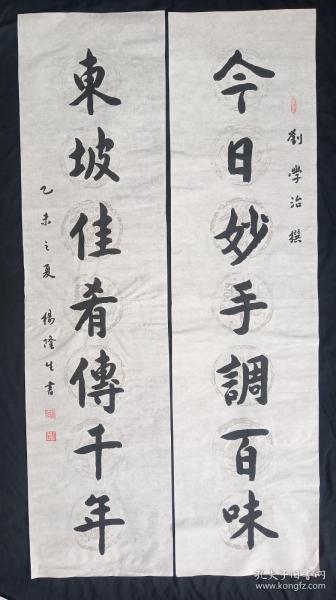 今日妙手調百味
劉學治撰
東坡佳肴傳千年
乙未之夏 楊隆生書
孔夫子旧书网
www.kongfz.com